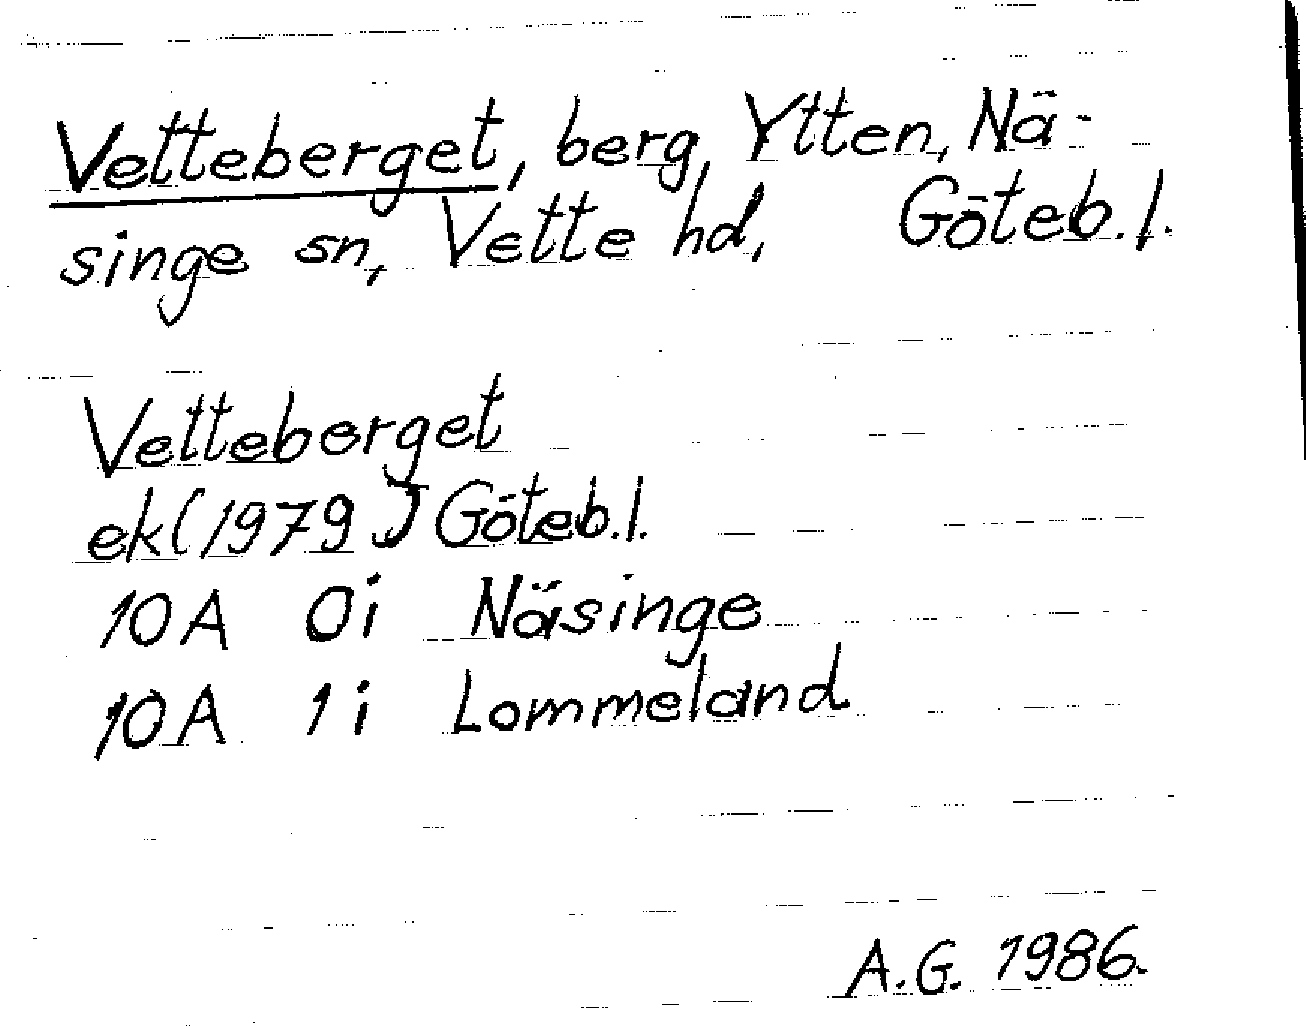 Vetteberget, berg, Ytten, Nä-
singe sn, Vette hd, Göteb. l.
Vetteberget
ek (1979) Göteb. l.
10A 0i Näsinge
10A 1i Lommeland
A.G. 1986.